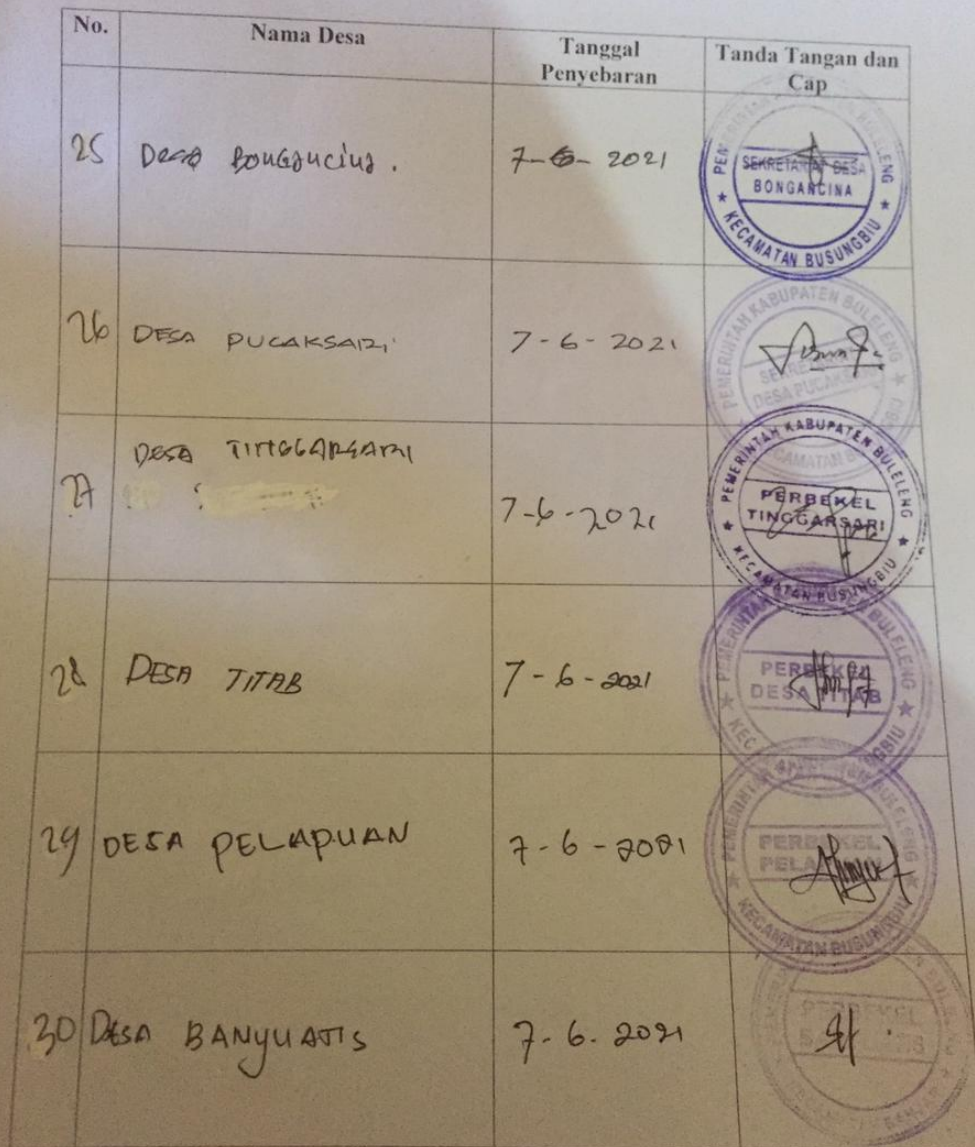 No. Nama Desa Tanggal Penyebaran Tanda Tangan dan Cap
25 Desa Bongancina. 7-6-2021
PEMERINTAH KABUPATEN BULELENG
SEKRETARIAT DESA
BONGANCINA
KECAMATAN BUSUNGBIU
26 DESA PUCAKSARI 7-6-2021
PEMERINTAH KABUPATEN BULELENG
DESA PUCAKSARI
27 DESA TINGGARSARI 7-6-2021
PEMERINTAH KABUPATEN BULELENG
PERBEKEL
TINGGARSARI
KECAMATAN BUSUNGBIU
28 DESA TITAB 7-6-2021
PEMERINTAH BULELENG
PERBEKEL
DESA TITAB
29 DESA PELAPUAN 7-6-2021
PERBEKEL
KECAMATAN BUSUNGBIU
30 DESA BANYUATIS 7.6.2021
PERBEKEL